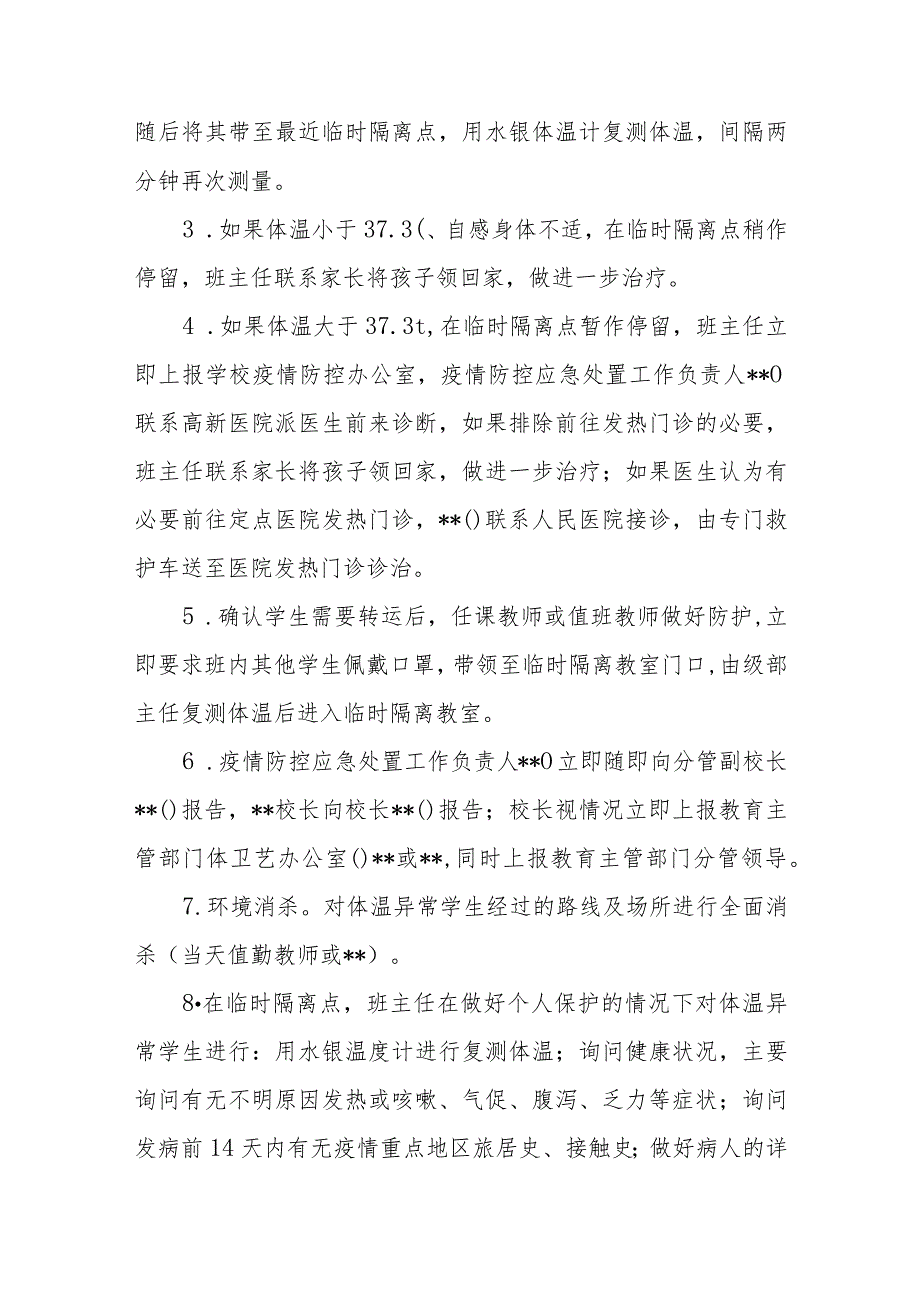 随后将其带至最近临时隔离点，用水银体温计复测体温，间隔两
分钟再次测量。
3 .如果体温小于 37.3(、自感身体不适，在临时隔离点稍作
停留，班主任联系家长将孩子领回家，做进一步治疗。
4 .如果体温大于 37.3t,在临时隔离点暂作停留，班主任立
即上报学校疫情防控办公室，疫情防控应急处置工作负责人**0
联系高新医院派医生前来诊断，如果排除前往发热门诊的必要，
班主任联系家长将孩子领回家，做进一步治疗；如果医生认为有
必要前往定点医院发热门诊，**()联系人民医院接诊，由专门救
护车送至医院发热门诊诊治。
5 .确认学生需要转运后，任课教师或值班教师做好防护,立
即要求班内其他学生佩戴口罩，带领至临时隔离教室门口,由级部
主任复测体温后进入临时隔离教室。
6 .疫情防控应急处置工作负责人**0 立即随即向分管副校长
**()报告，**校长向校长**()报告；校长视情况立即上报教育主
管部门体卫艺办公室()**或**,同时上报教育主管部门分管领导。
7.环境消杀。对体温异常学生经过的路线及场所进行全面消
杀（当天值勤教师或**）。
8•在临时隔离点，班主任在做好个人保护的情况下对体温异
常学生进行：用水银温度计进行复测体温；询问健康状况，主要
询问有无不明原因发热或咳嗽、气促、腹泻、乏力等症状；询问
发病前 14 天内有无疫情重点地区旅居史、接触史；做好病人的详